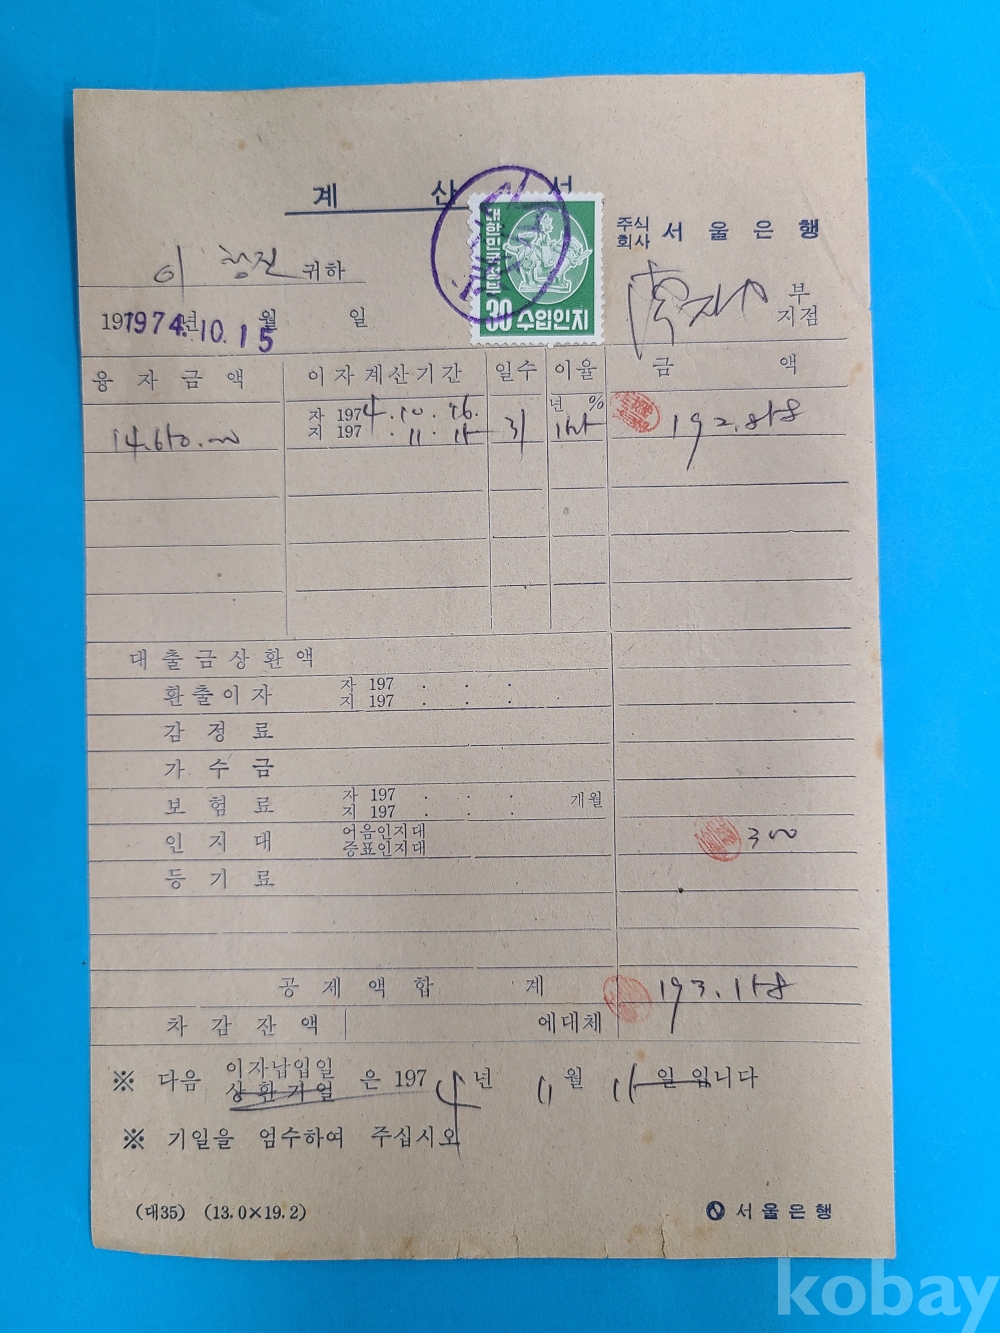 계 산 서
주식회사 서울은행
대한민국정부
30 수입인지
이 귀하
부
지점
197 년 월 일
1974.10.15
융자금액 이자계산기간 일수 이율 금 액
자 1974.10.16. 년 %
지 197 .11.15 31
대출금상환액
환출이자 자 197 . . .
지 197 . . .
감정료
가수금
보험료 자 197 . . . 개월
지 197 . . .
인지대 어음인지대
증표인지대 300
등기료
공제액합계 193.158
차감잔액 에대체
※ 다음 이자납입일 은 1974년 11월 15일 입니다
상환기일
※ 기일을 엄수하여 주십시오
(대35) (13.0×19.2) 서울은행
kobay